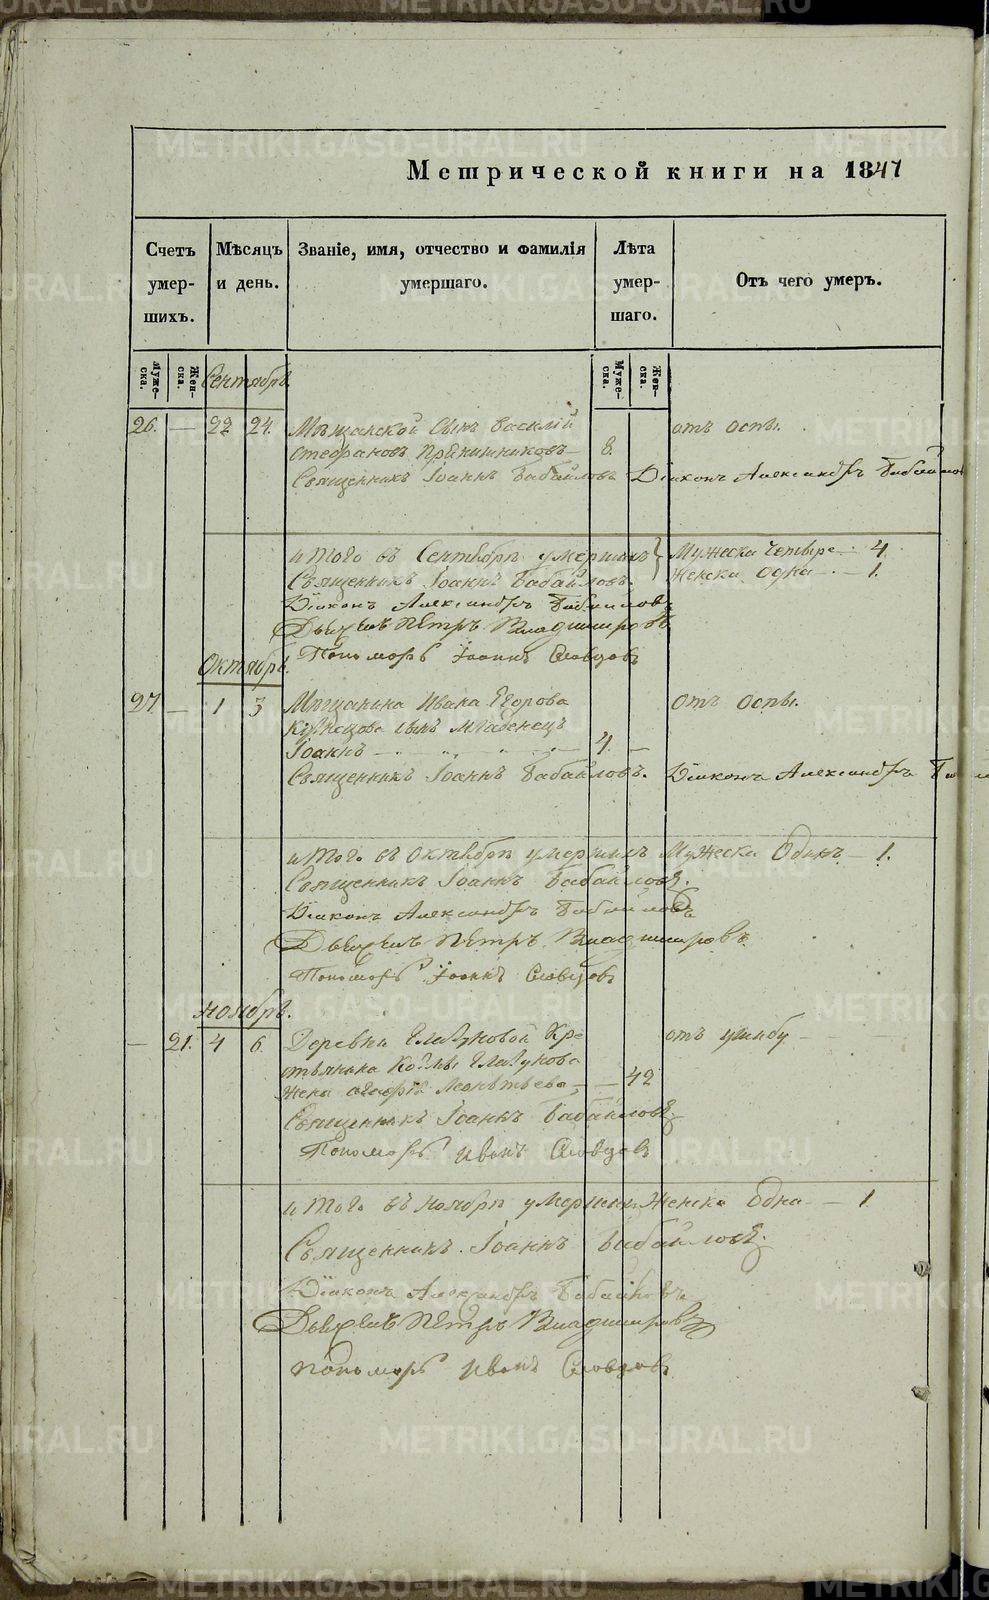 Метрической книги на 1847
Счетъ умер-шихъ.
Мѣсяцъ и день.
Званіе, имя, отчество и фамилія умершаго.
Лѣта умер-шаго.
Отъ чего умеръ.
Муже-ска.
Жен-ска.
Сентябрь.
Муже-ска.
Жен-ска.
26. — 22 24. Мѣщанской сынъ Василій отъ оспы.
Стефановъ Прянишниковъ — 8.
Священникъ Іоаннъ Бабайловъ Діаконъ Александръ Бабайлов
итого въ Сентябрѣ умершихъ Мужеска четыре — 4.
Священникъ Іоаннъ Бабайловъ. Женска одна — 1.
Діаконъ Александръ Бабайловъ
Дьячекъ Петръ Владимировъ
Пономарь Іоаннъ Словцовъ
Октябрь.
27. — 1 3 Мѣщанина Ивана Егорова отъ оспы.
Кузнецова сынъ младенецъ
Іоаннъ — 4. —
Священникъ Іоаннъ Бабайловъ. Діаконъ Александръ
итого въ Октябрѣ умершихъ Мужеска Одинъ — 1.
Священникъ Іоаннъ Бабайловъ.
Діаконъ Александръ Бабайловъ
Дьячекъ Петръ Владимировъ
Пономарь Іоаннъ Словцовъ
Ноябрь.
— 21. 4 6 Деревни Глазуновой Кре- отъ ушибу —
стьянина Козмы Глазунова
жена Леонтьева — — 42
Священникъ Іоаннъ Бабайловъ
Пономарь Иванъ Словцовъ
итого въ ноябрѣ умершихъ Женска Одна — 1
Священникъ Іоаннъ Бабайловъ.
Діаконъ Александръ Бабайловъ
Дьячекъ Петръ Владимировъ
Пономарь Иванъ Словцовъ
METRIKI.GASO-URAL.RU